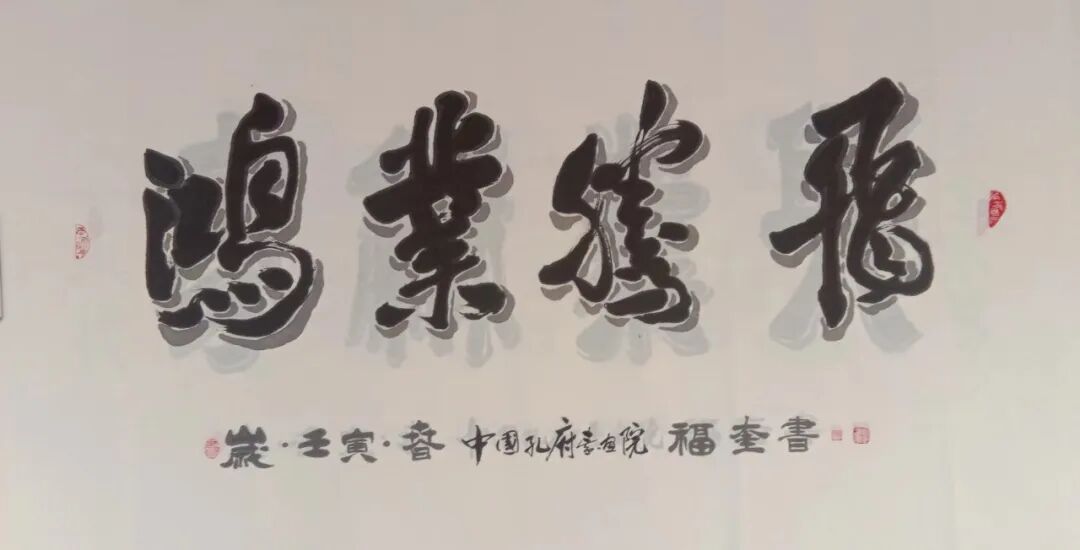 鴻業騰飛
歲·壬寅·春 中國孔府書畫院 福奎書